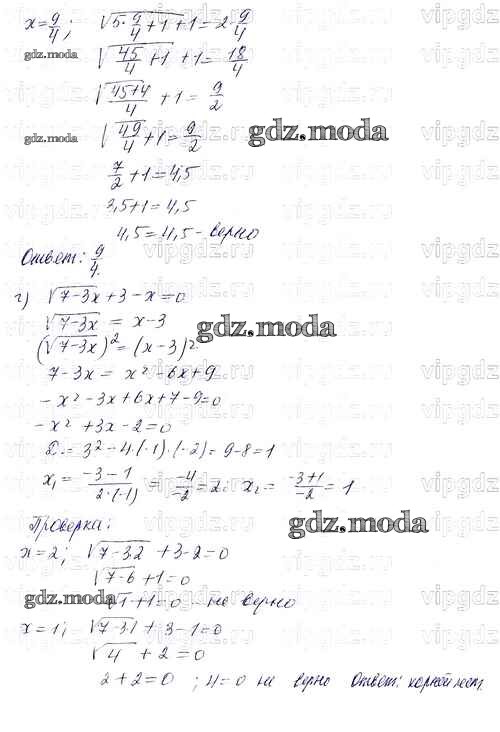 x=9/4; √(5·9/4+1)+1=2·9/4
gdz.moda √(45/4+1)+1=18/4
√((45+4)/4)+1=9/2
gdz.moda √(49/4)+1=9/2 gdz.moda
7/2+1=4,5
3,5+1=4,5
4,5=4,5-верно
Ответ: 9/4.
г) √(7-3x)+3-x=0
√(7-3x) = x-3 gdz.moda
(√(7-3x))²=(x-3)²
7-3x = x²-6x+9
-x²-3x+6x+7-9=0
-x²+3x-2=0
D=3²-4·(-1)·(-2)=9-8=1
x₁=(-3-1)/(2·(-1)) = -4/-2=2. x₂=(-3+1)/-2=1
Проверка: gdz.moda
x=2; √(7-3·2)+3-2=0
√(7-6)+1=0
gdz.moda √1+1=0 не верно
x=1; √(7-3·1)+3-1=0
√4+2=0
2+2=0; 4=0 не верно Ответ: корней нет.